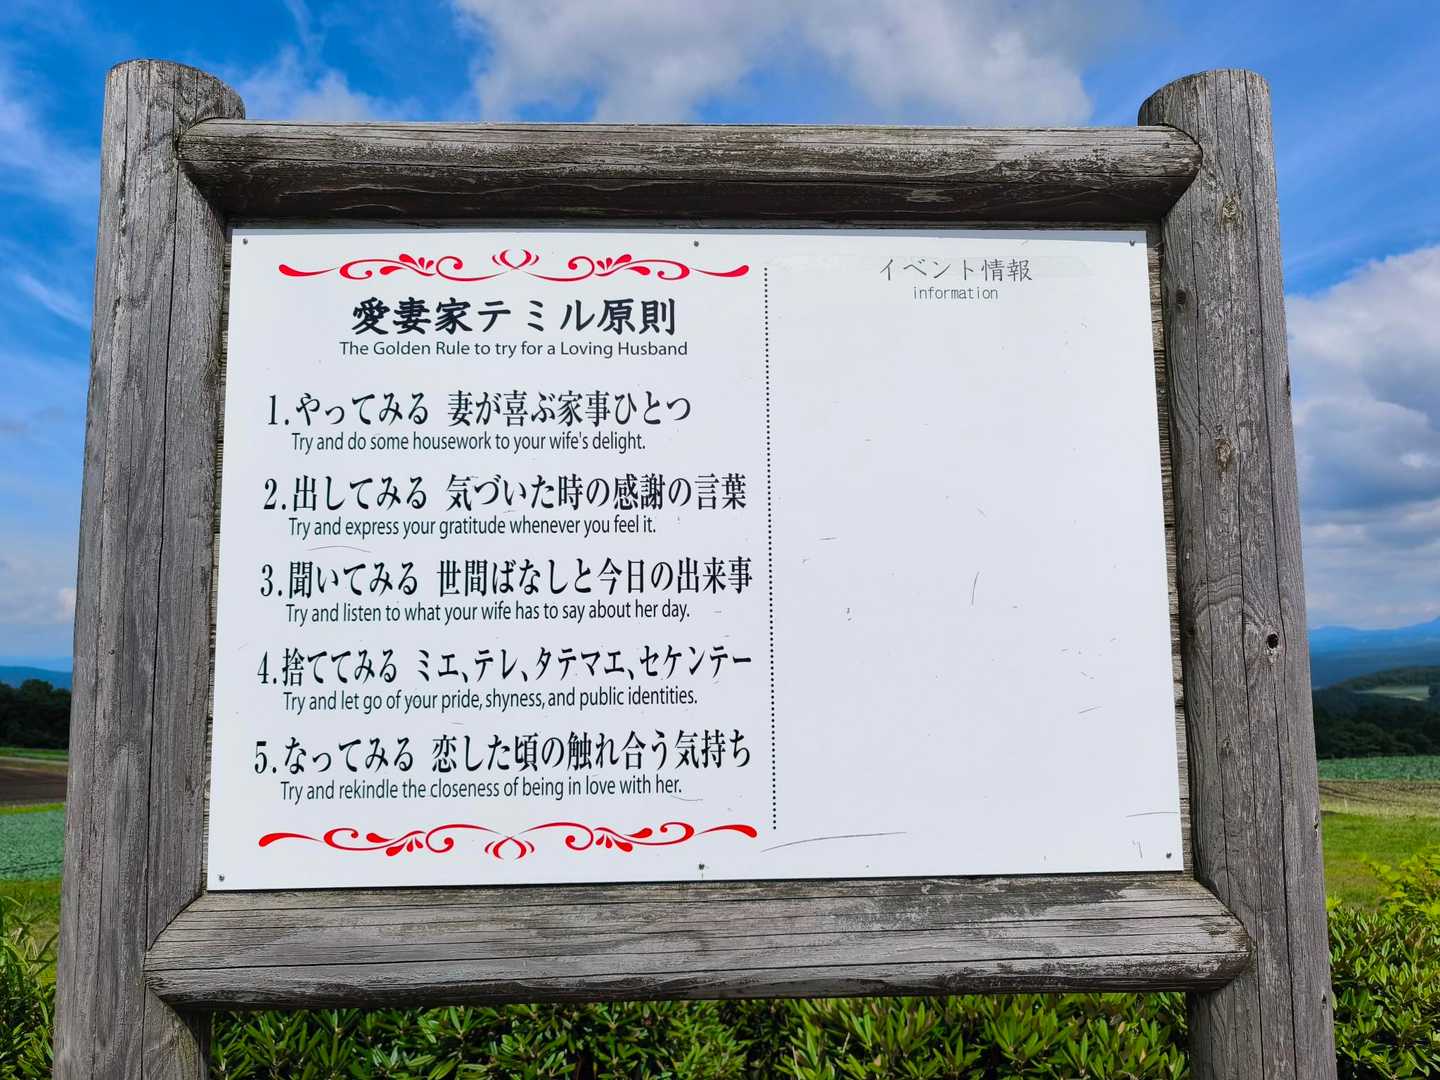 愛妻家テミル原則
The Golden Rule to try for a Loving Husband
1.やってみる 妻が喜ぶ家事ひとつ
Try and do some housework to your wife's delight.
2.出してみる 気づいた時の感謝の言葉
Try and express your gratitude whenever you feel it.
3.聞いてみる 世間ばなしと今日の出来事
Try and listen to what your wife has to say about her day.
4.捨ててみる ミエ、テレ、タテマエ、セケンテー
Try and let go of your pride, shyness, and public identities.
5.なってみる 恋した頃の触れ合う気持ち
Try and rekindle the closeness of being in love with her.
イベント情報
information